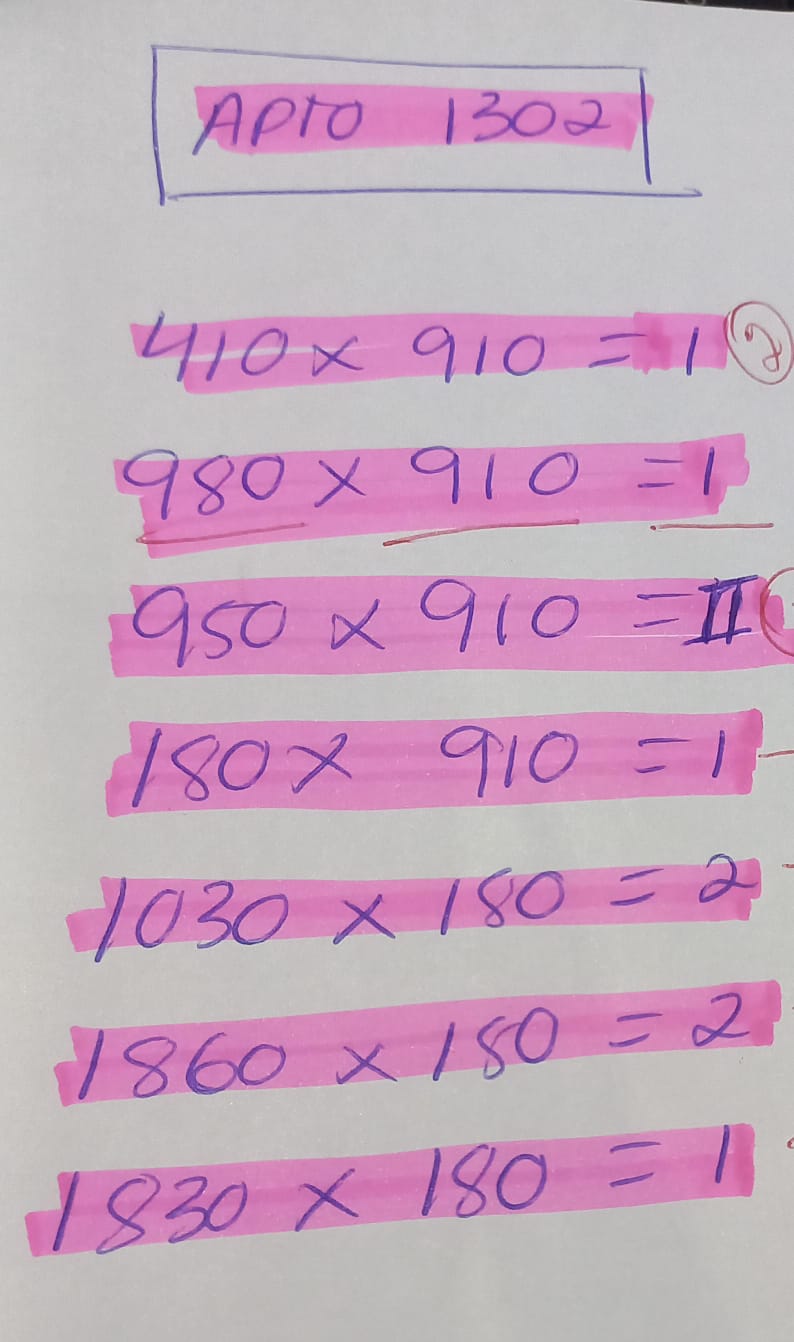 APTO 1302
410 x 910 = 1
980 x 910 = 1
950 x 910 = II
180 x 910 = 1
1030 x 180 = 2
1860 x 180 = 2
1830 x 180 = 1